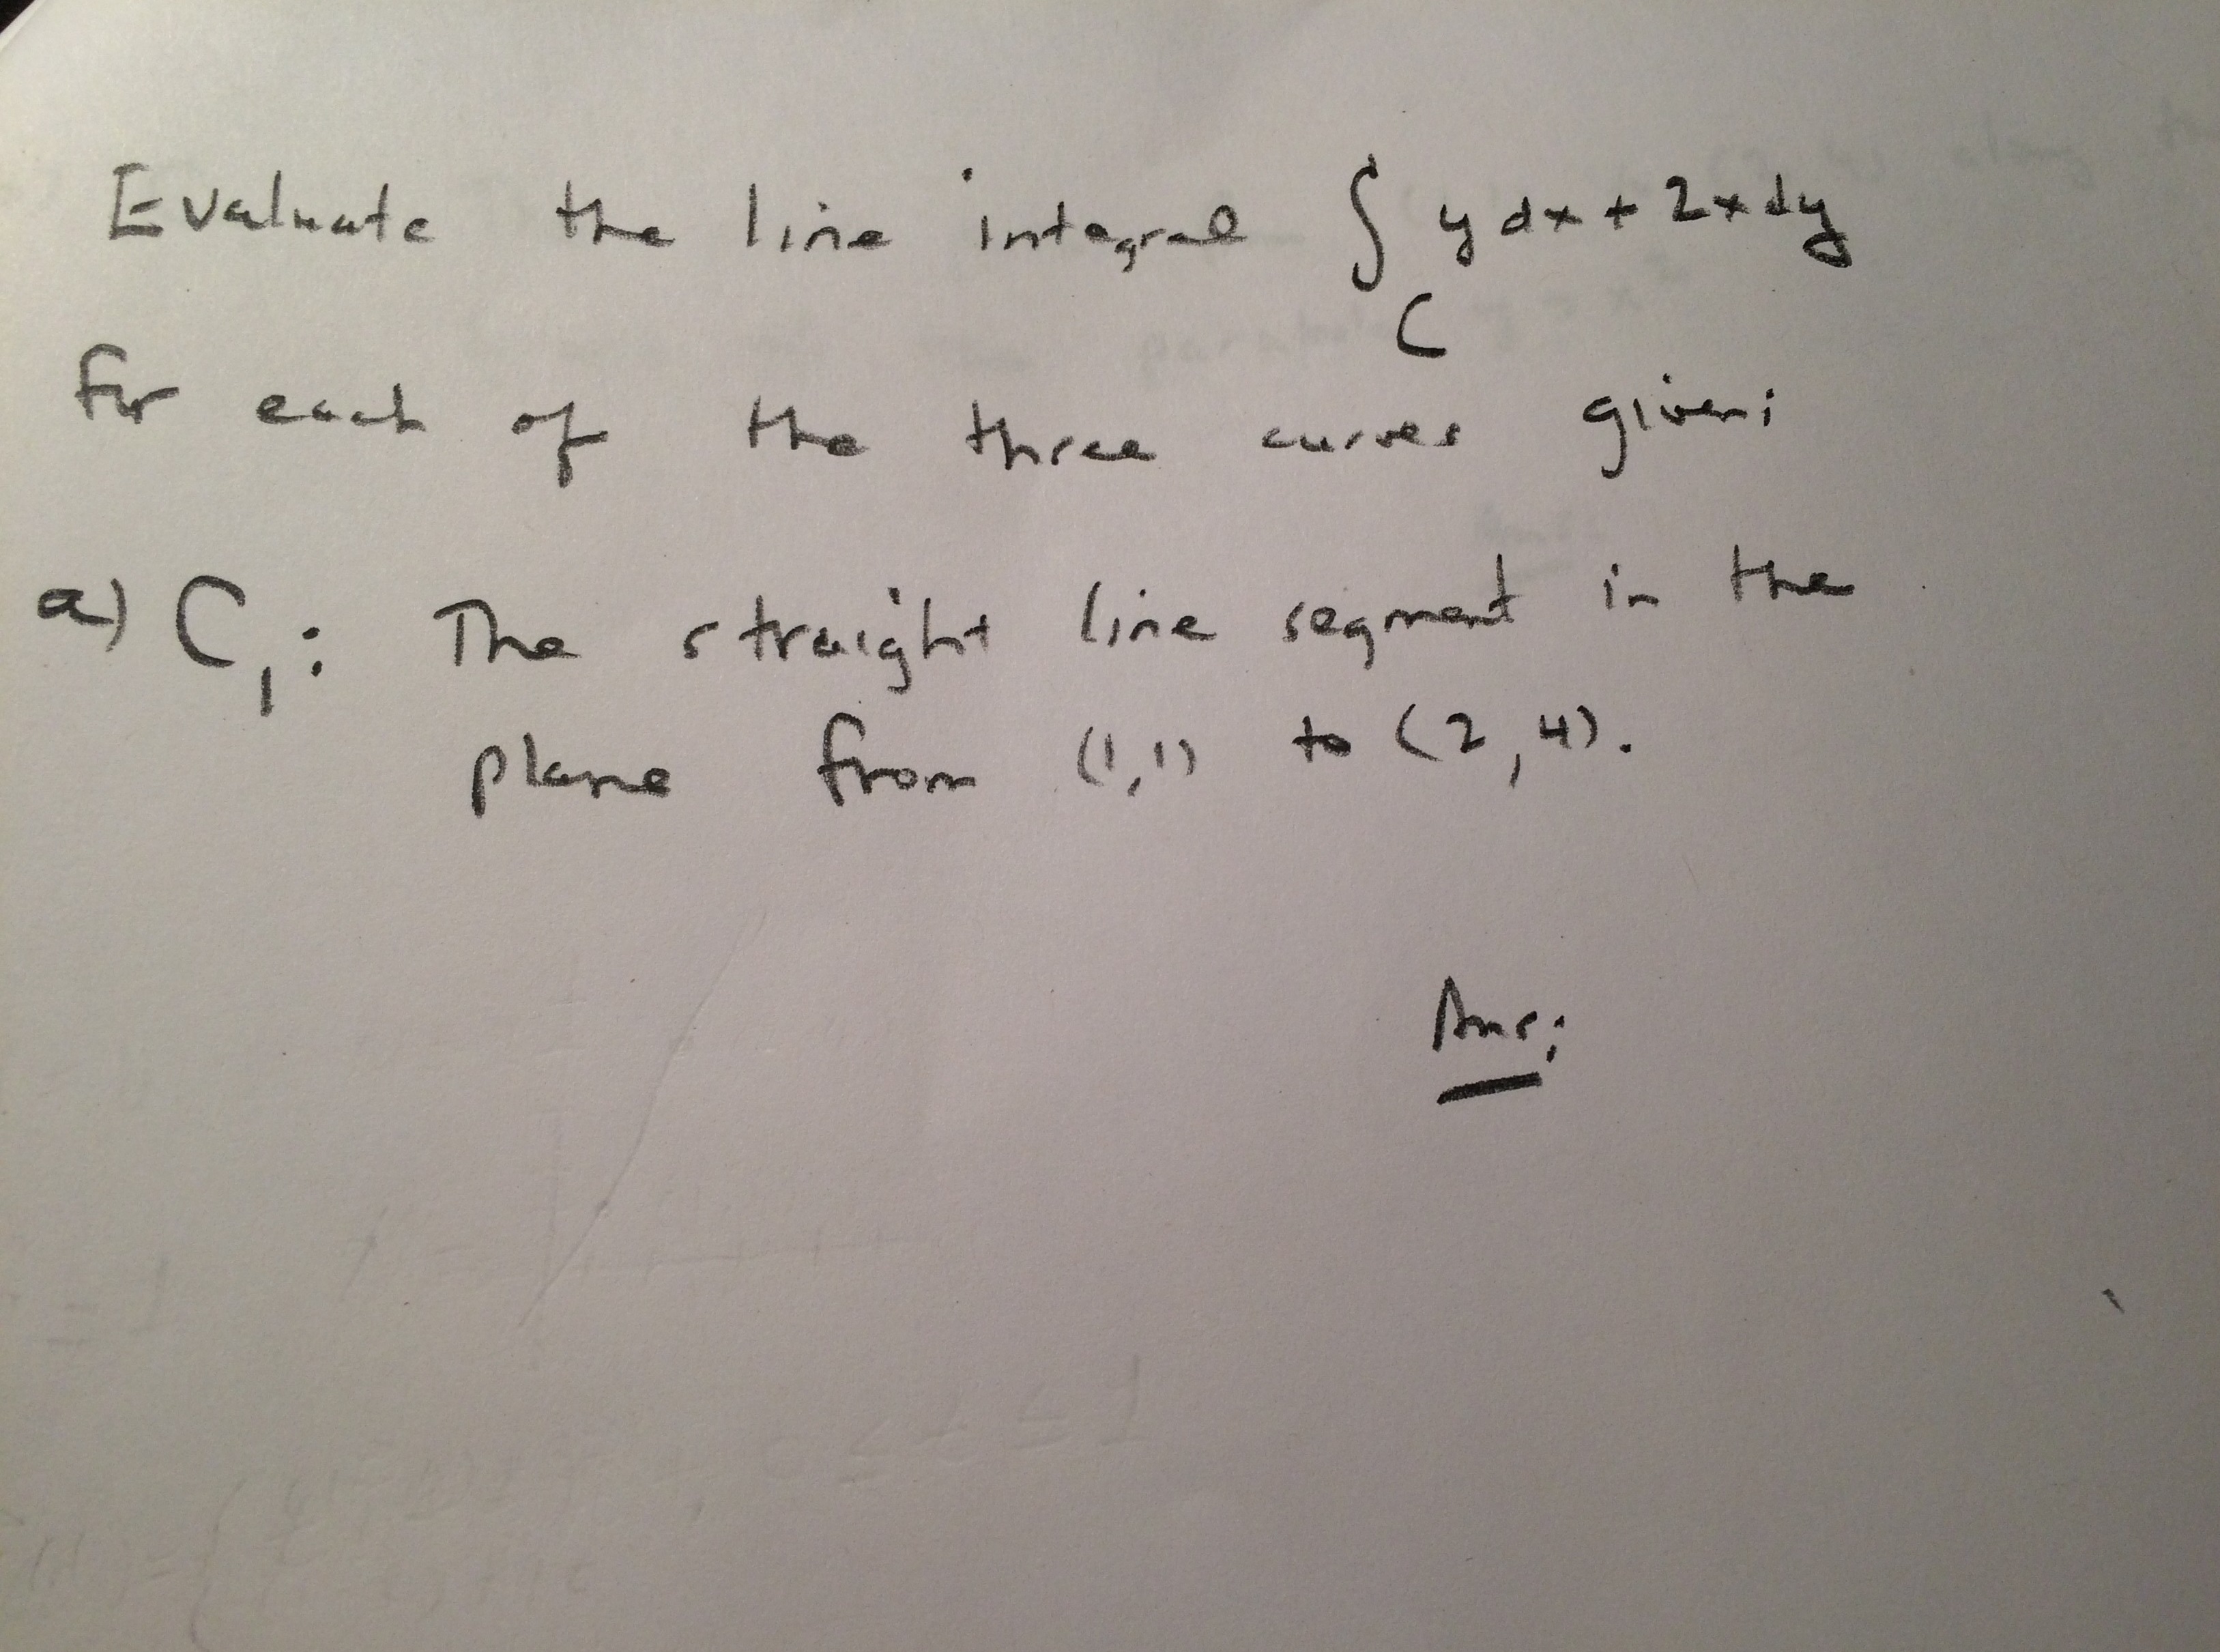 Evaluate the line integral ∫ y dx + 2x dy
C
for each of the three curves given:
a) C₁: The straight line segment in the
plane from (1,1) to (2,4).
Ans: